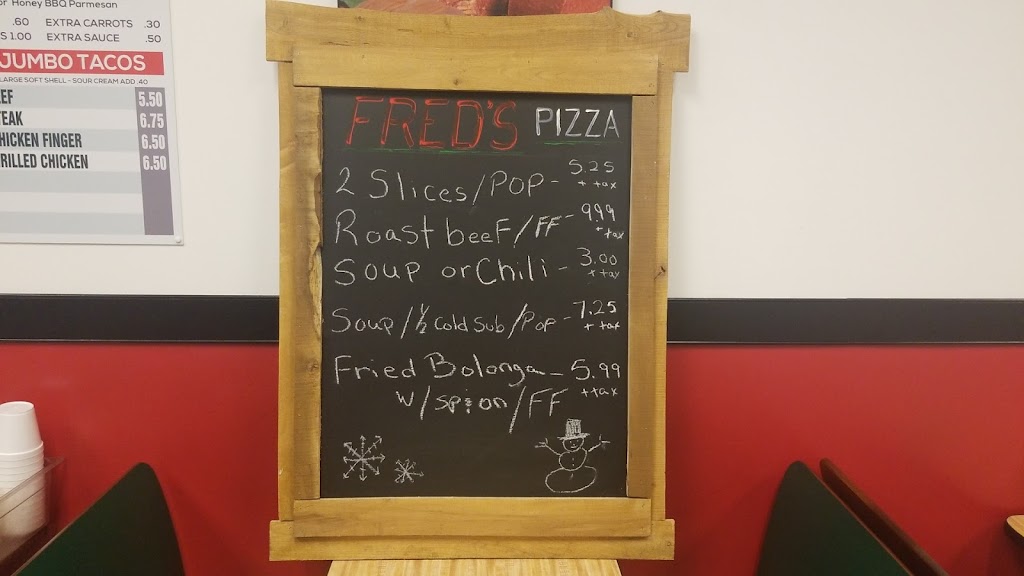 or Honey BBQ Parmesan
.60 EXTRA CARROTS .30
S 1.00 EXTRA SAUCE .50
JUMBO TACOS
LARGE SOFT SHELL - SOUR CREAM ADD .40
EF 5.50
TEAK 6.75
HICKEN FINGER 6.50
RILLED CHICKEN 6.50
FRED'S PIZZA
2 Slices/POP - 5.25
+ tax
Roast beef/FF - 9.99
+ tax
Soup or Chili - 3.00
+ tax
Soup/½ Cold Sub/Pop - 7.25
+ tax
Fried Bolonga - 5.99
+tax
w/sp+on/FF